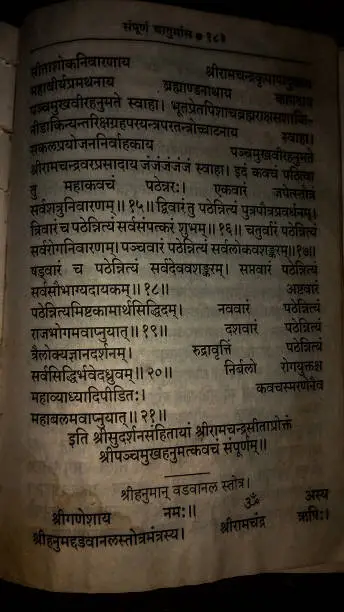 संपूर्ण चातुर्मास ● १८३
सीताशोकनिवारणाय श्रीरामचन्द्रकृपापादुकाय
महावीर्यप्रमथनाय ब्रह्माण्डनाथाय कामदाय
पञ्चमुखवीरहनुमते स्वाहा। भूतप्रेतपिशाचब्रह्मराक्षसशाकि-
नीडाकिन्यन्तरिक्षग्रहपरयन्त्रपरतन्त्रोच्चाटनाय स्वाहा।
सकलप्रयोजननिर्वाहकाय पञ्चमुखवीरहनुमते
श्रीरामचन्द्रवरप्रसादाय जंजंजंजंजं स्वाहा। इदं कवचं पठित्वा
तु महाकवचं पठेन्नरः। एकवारं जपेत्स्तोत्रं
सर्वशत्रुनिवारणम्॥१५॥ द्विवारं तु पठेन्नित्यं पुत्रपौत्रप्रवर्धनम्।
त्रिवारं च पठेन्नित्यं सर्वसंपत्करं शुभम्॥१६॥ चतुर्वारं पठेन्नित्यं
सर्वरोगनिवारणम्। पञ्चवारं पठेन्नित्यं सर्वलोकवशङ्करम्॥१७॥
षड्वारं च पठेन्नित्यं सर्वदेववशङ्करम्। सप्तवारं पठेन्नित्यं
सर्वसौभाग्यदायकम्॥१८॥ अष्टवारं
पठेन्नित्यमिष्टकामार्थसिद्धिदम्। नववारं पठेन्नित्यं
राजभोगमवाप्नुयात्॥१९॥ दशवारं पठेन्नित्यं
त्रैलोक्यज्ञानदर्शनम्। रुद्रावृत्तिं पठेन्नित्यं
सर्वसिद्धिर्भवेद्ध्रुवम्॥२०॥ निर्बलो रोगयुक्तश्च
महाव्याध्यादिपीडितः। कवचस्मरणेनैव
महाबलमवाप्नुयात्॥२१॥
इति श्रीसुदर्शनसंहितायां श्रीरामचन्द्रसीताप्रोक्तं
श्रीपञ्चमुखहनुमत्कवचं संपूर्णम्॥
श्रीहनुमान् वडवानल स्तोत्र।
श्रीगणेशाय नमः॥ ॐ अस्य
श्रीहनुमद्वडवानलस्तोत्रमंत्रस्य। श्रीरामचंद्र ऋषिः।